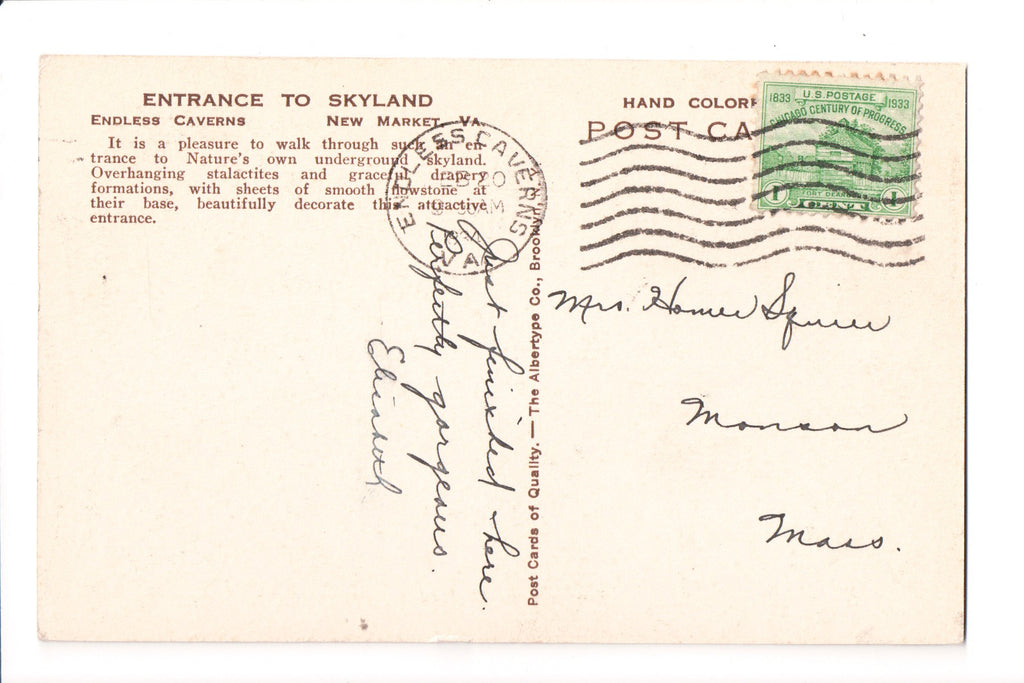 ENTRANCE TO SKYLAND
ENDLESS CAVERNS NEW MARKET, VA.
It is a pleasure to walk through such an en-
trance to Nature's own underground skyland.
Overhanging stalactites and graceful drapery
formations, with sheets of smooth flowstone at
their base, beautifully decorate this attractive
entrance.
ENDLESS CAVERNS
AM
VA
Just finished here.
Perfectly gorgeous.
Elizabeth
Post Cards of Quality. — The Albertype Co., Brooklyn
HAND COLORE
POST CA
1833 U.S. POSTAGE 1933
CHICAGO CENTURY OF PROGRESS
FORT DEARBORN
1 CENT 1
Mrs. Homer Squier
Monson
Mass.